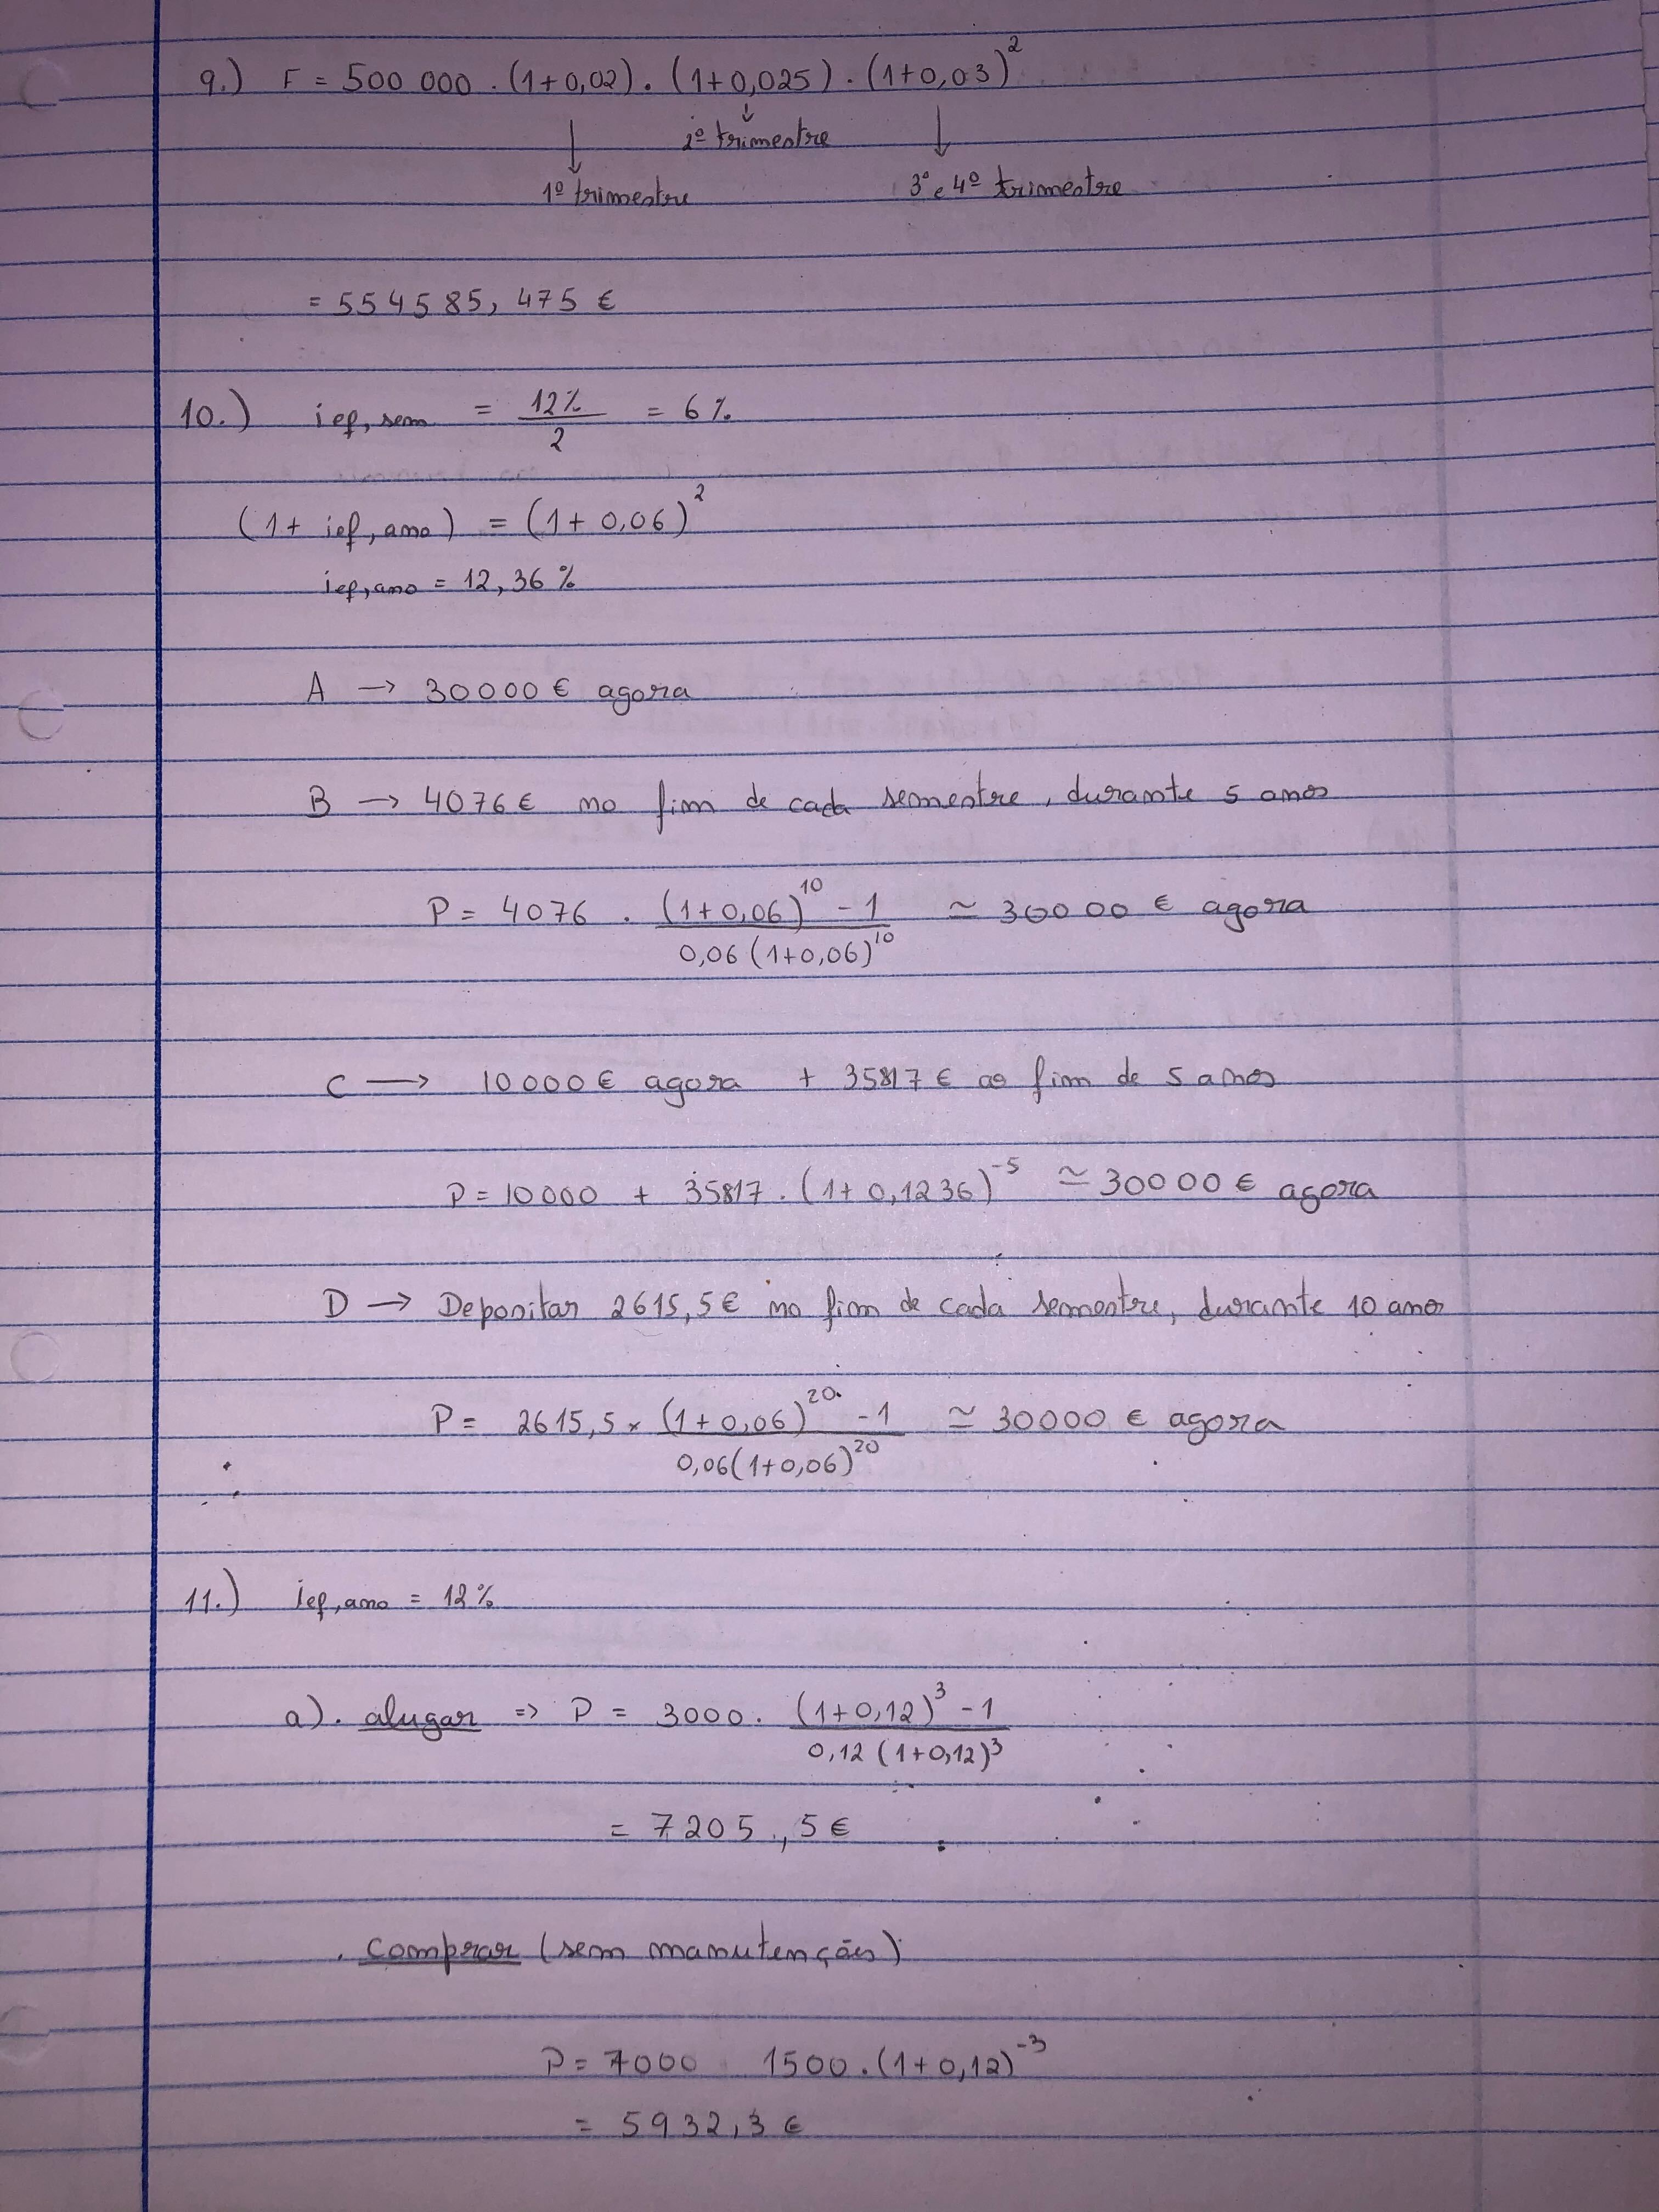 9.) F = 500 000 . (1+0,02) . (1+0,025) . (1+0,03)²
↓ 2º trimestre
↓ 1º trimestre ↓ 3º e 4º trimestre
= 554585,475 €
10.) ief,sem = 12% / 2 = 6 %
(1 + ief,ano) = (1 + 0,06)²
ief,ano = 12,36 %
A → 30000 € agora
B → 4076 € no fim de cada semestre, durante 5 anos
P = 4076 . ((1+0,06)¹⁰ - 1) / (0,06 (1+0,06)¹⁰) ≃ 30000 € agora
C → 10000 € agora + 35817 € ao fim de 5 anos
P = 10000 + 35817 . (1 + 0,1236)⁻⁵ ≃ 30000 € agora
D → Depositar 2615,5 € no fim de cada semestre, durante 10 anos
P = 2615,5 × ((1+0,06)²⁰ - 1) / (0,06(1+0,06)²⁰) ≃ 30000 € agora
11.) ief,ano = 12%
a) . alugar => P = 3000 . ((1+0,12)³ - 1) / (0,12 (1+0,12)³)
= 7205,5 €
. comprar (sem manutenção)
P = 7000 1500 . (1+0,12)⁻³
= 5932,3 €